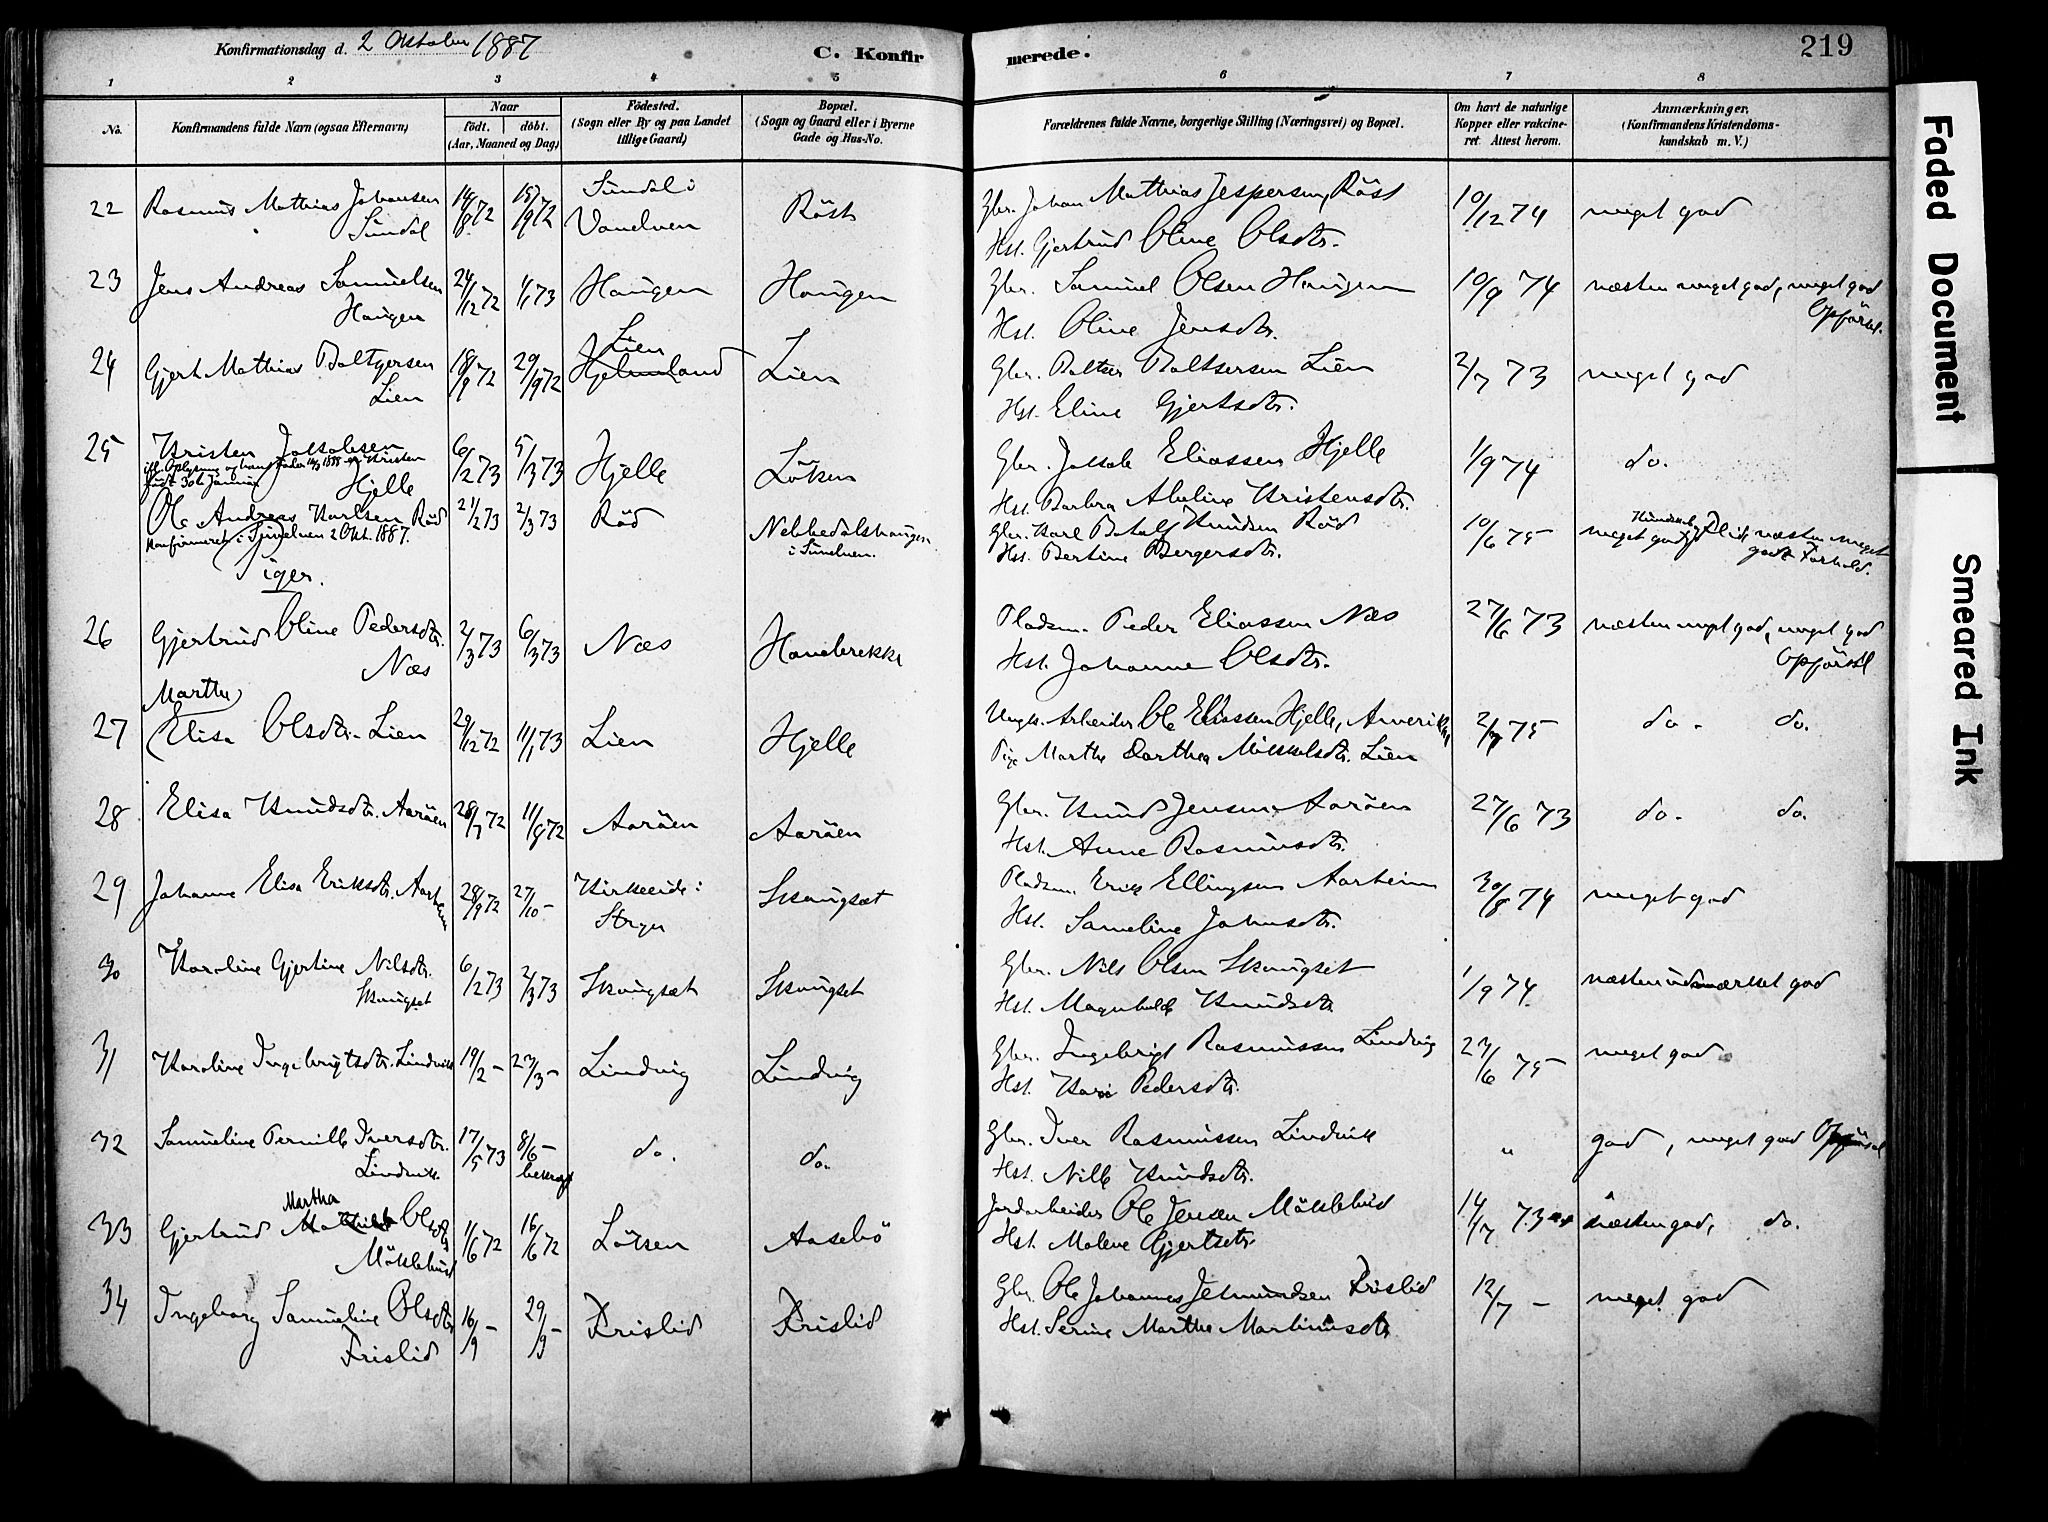 Konfirmationsdag d. 2 Oktober 1887
C. Konfirmerede.
219
1 2 3 4 5 6 7 8
No.
Konfirmandens fulde Navn (ogsaa Efternavn)
Naar
födt. döbt.
(Aar, Maaned og Dag)
Födested.
(Sogn eller By og paa Landet tillige Gaard)
Bopæl.
(Sogn og Gaard eller i Byerne Gade og Hus-No.
Forældrenes fulde Navne, borgerlige Stilling (Næringsvei) og Bopæl.
Om havt de naturlige Kopper eller vakcineret. Attest herom.
Anmærkninger.
(Konfirmandens Kristendomskundskab m. V.)
22 Rasmus Mathias Johansen Sundal 14/8 72 15/9 72 Sundal i Vanelven Röst Gbr. Johan Mathias Jespersen, Röst 10/12 74 meget god
Hst. Gjertrud Oline Olsdtr.
23 Jens Andreas Samuelsen Haugen 24/12 72 1/1 73 Haugen Haugen Gbr. Samuel Olsen Haugen 10/9 74 næsten meget god, meget god Opförsel.
Hst. Oline Jensdtr.
24 Gjert Mathias Baltzersen Lien 18/9 72 29/9 72 Lien Hjelmeland Lien Gbr. Baltser Baltsersen Lien 2/7 73 meget god
Hst. Eline Gjertsdtr.
25 Kristen Jakobsen Hjelle 6/2 73 5/3 73 Hjelle Löken Gbr. Jakob Eliassen Hjelle 1/9 74 do.
födt 30te Januar
Hst. Barbra Abeline Kristensdtr.
Ole Andreas Karlsen Röd 21/2 73 2/3 73 Röd Nebbedalshaugen i Sunelven. Gbr. Karl Knudsen Röd 10/6 75 meget god Kundskab Flid, næsten meget godt Forhold.
Konfirmeret i Sunelven 2 Okt. 1887.
Hst. Bertine Bergersdtr.
Piger.
26 Gjertrud Oline Pedersdtr. Næs 2/3 73 6/3 73 Næs Hanebrekke Pladsm. Peder Eliassen Næs 27/6 73 næsten meget god, meget god Opförsel
Hst. Johanne Olsdtr.
27 Marthe Elisa Olsdtr. Lien 29/12 72 11/1 73 Lien Hjelle Ungk. Arbeider Ole Eliassen Hjelle, Amerika 2/7 75 do. do.
Pige Marthe Dorthea Mikkelsdtr. Lien
28 Elisa Knudsdtr. Aaröen 28/7 72 11/8 72 Aaröen Aaröen Gbr. Knud Jensen Aaröen 27/6 73 do. do.
Hst. Anne Rasmusdtr.
29 Johanne Elisa Eriksdtr. Aarheim 28/9 72 27/10 - Kirkeeide i Stryn Skaugsæt Pladsm. Erik Ellingsen Aarheim 30/8 74 meget god
Hst. Sameline Johnsdtr.
30 Karoline Gjertine Nilsdtr. Skaugset 6/2 73 2/3 73 Skaugsæt Skaugset Gbr. Nils Olsen Skaugset 1/9 74 næsten udmærket god
Hst. Magnhilde Knudsdtr.
31 Karoline Ingebrigtsdtr. Lindvik 19/2 - 23/3 - Lindvig Lindvig Gbr. Ingebrigt Rasmussen Lindvig 27/6 75 meget god
Hst. Kari Pedersdtr.
32 Samueline Pernille Iversdtr. Lindvik. 17/5 73 8/6 - do. do. Gbr. Iver Rasmussen Lindvik " god, meget god Opförsel
Hst. Nille Knudsdtr.
33 Gjertrud Martha Olsdtr Möklebust 1/6 72 16/6 72 Lötsen Aasebö Jordarbeider Ole Jensen Möklebust 14/7 73 næsten god, do.
Hst. Malene Gjertsdtr.
34 Ingeborg Samueline Olsdtr Frislid 16/9 - 29/9 - Frislid Frislid Gbr. Ole Johannes Jetmundsen Frislid 12/7 - meget god
Hst. Serine Marthe Martinusdtr
Faded Document
Smeared Ink